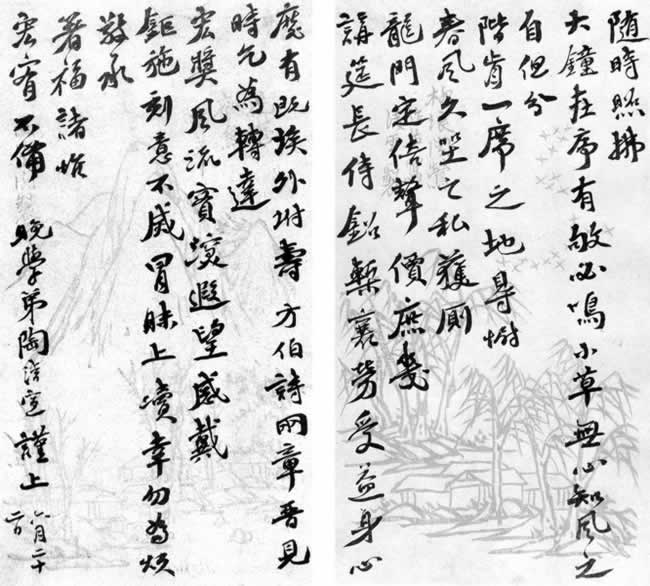 隨時照拂
大鐘在序有必鳴小草無心知風之
自但分
階前一席之地
春風久坐之私獲廁
龍門定倍聲價庶幾
講筵長侍鉛槧襄勞受益身心
有既外坿壽方伯詩兩章晉見
時乞為轉達
宏獎風流實深遐望感戴
鉅施刻意不冒昧上瀆幸勿為煩
敬承
箸福諸惟
宏宥不備 晚學弟陶濬宣謹上 六月二十
二日